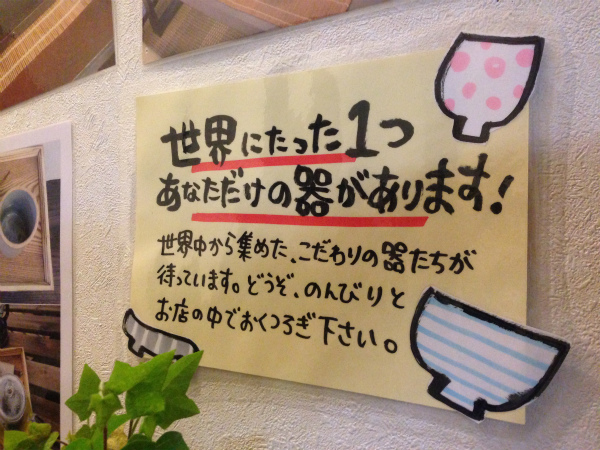 世界にたった1つ
あなただけの器があります!
世界中から集めた、こだわりの器たちが
待っています。どうぞ、のんびりと
お店の中でおくつろぎ下さい。